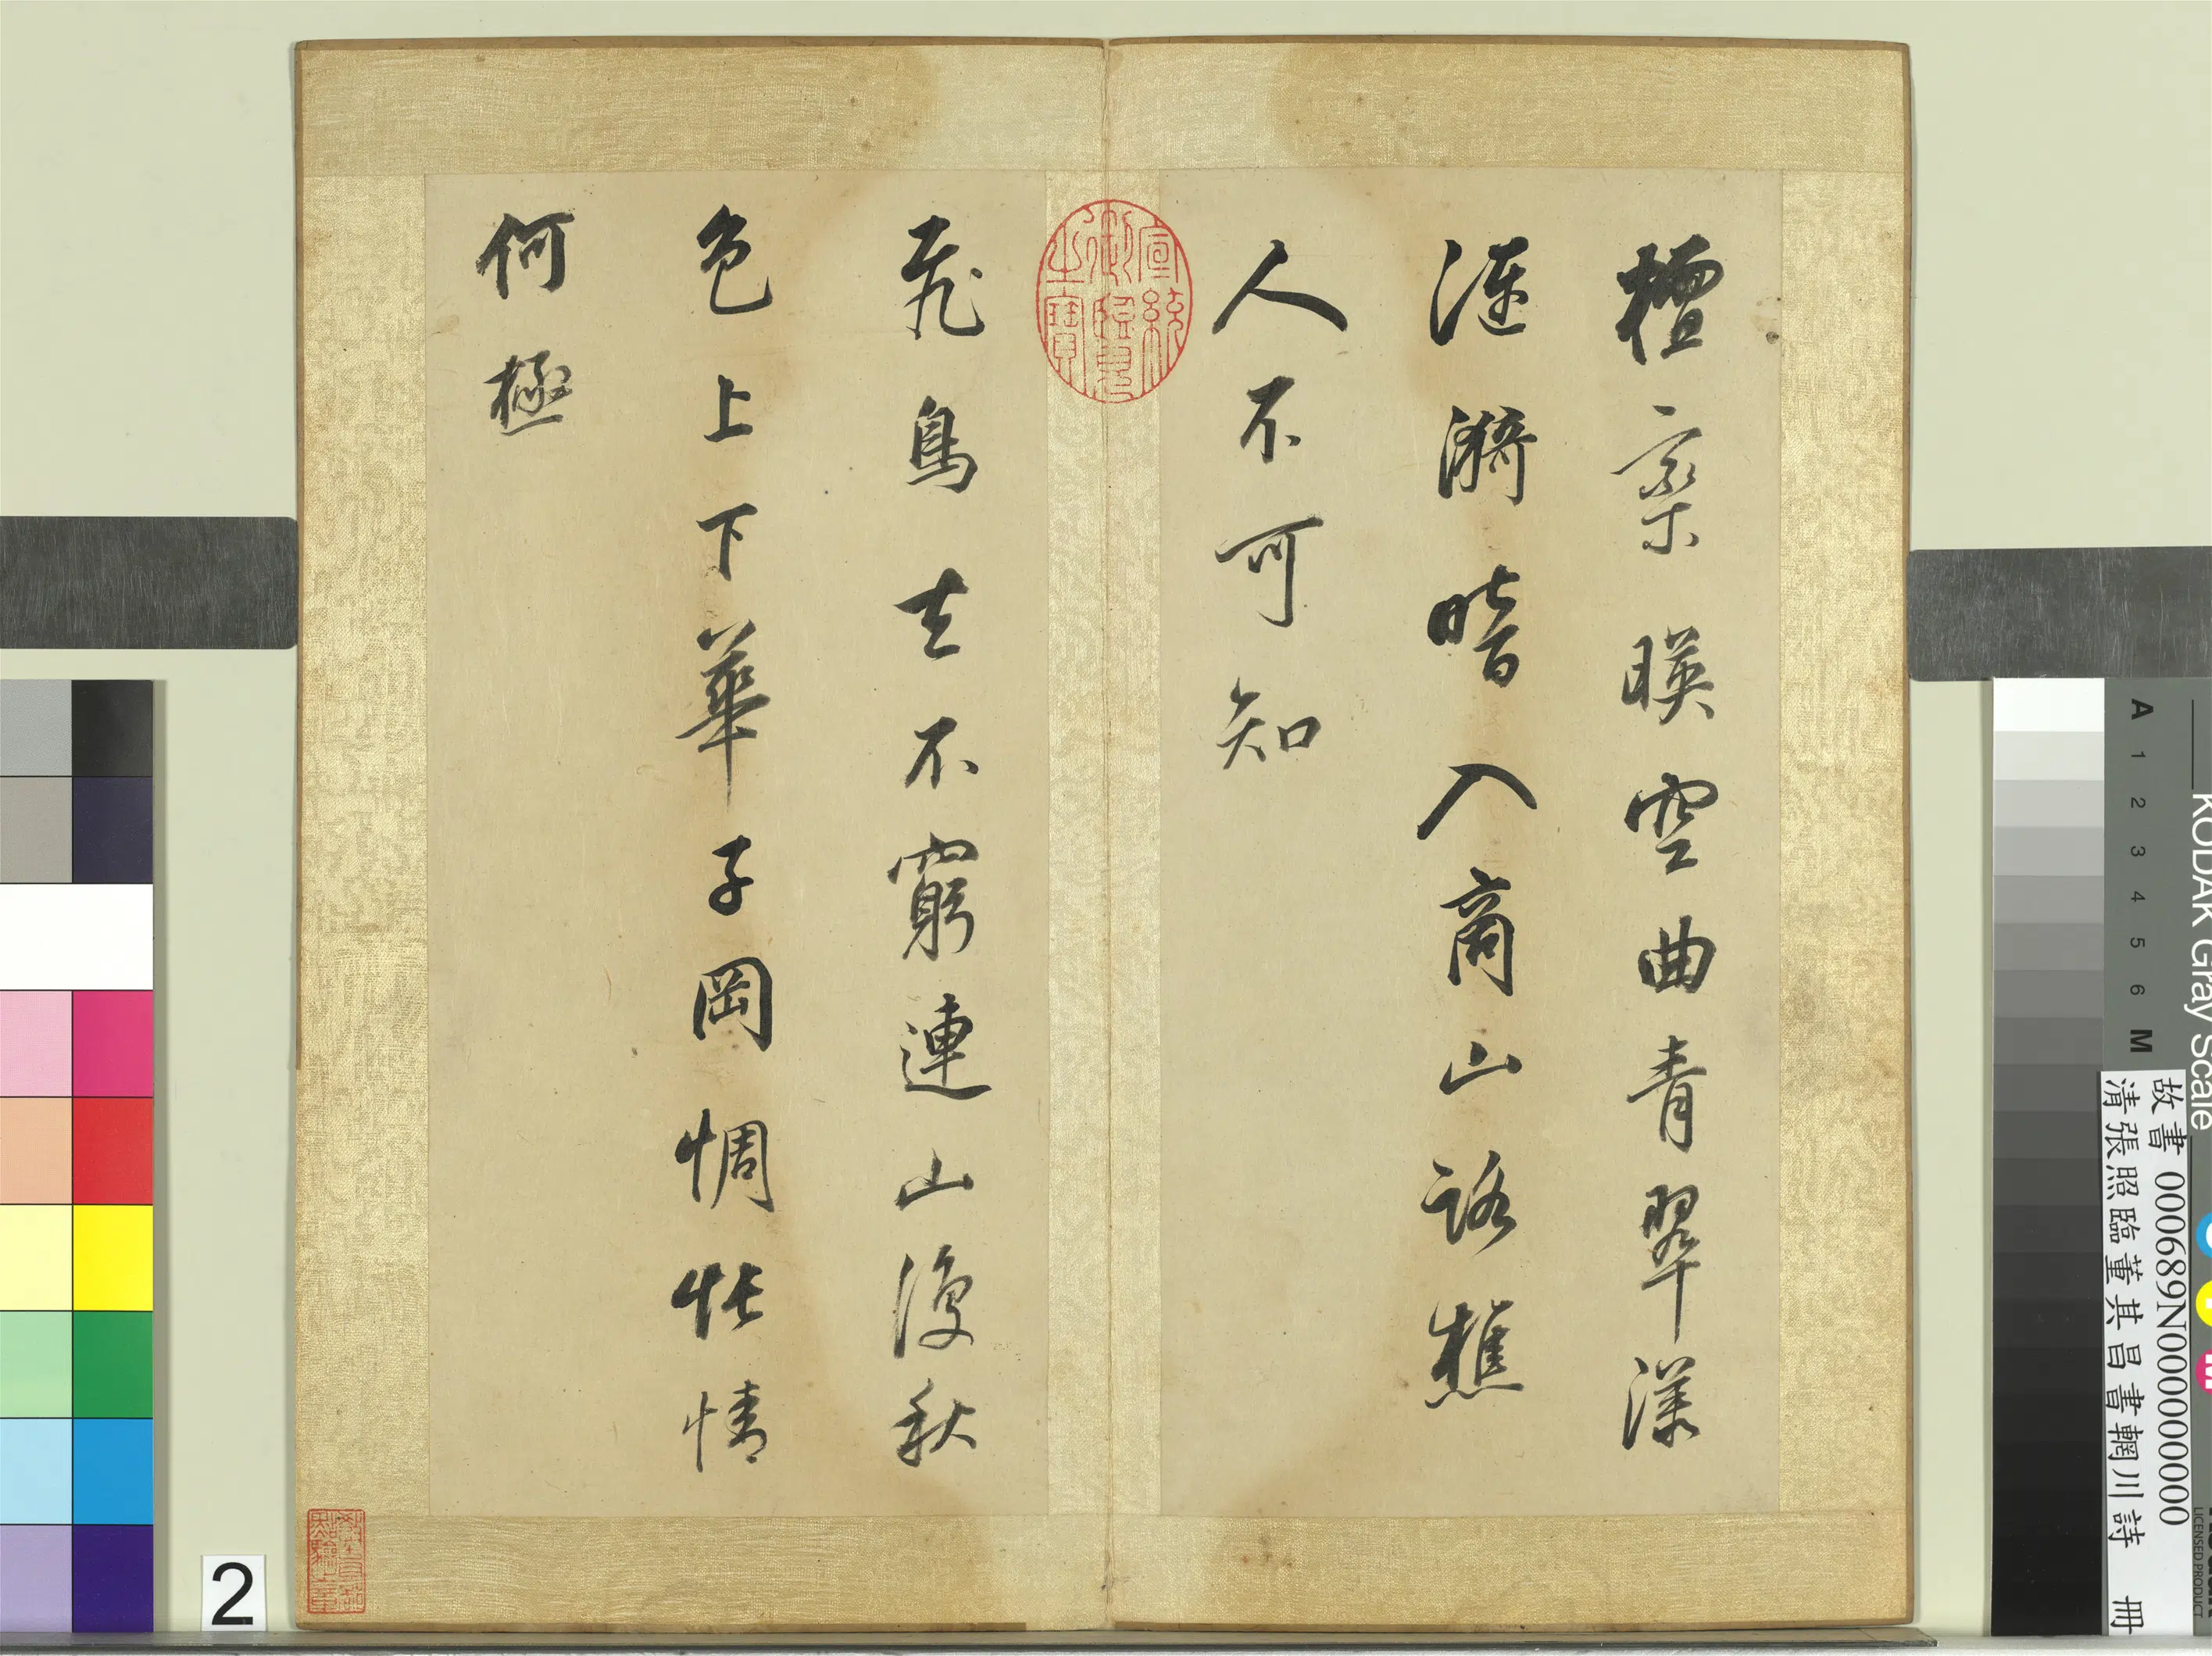 檀欒暎空曲青翠漾
漣漪暗入商山路樵
人不可知
飛鳥去不窮連山復秋
色上下華子岡惆悵情
何極
宣統
御覽
之寶
2
KODAK Gray Scale
A 1 2 3 4 5 6 M
故書 000689N000000000
清張照臨董其昌書輞川詩 冊
LICENSED PRODUCT